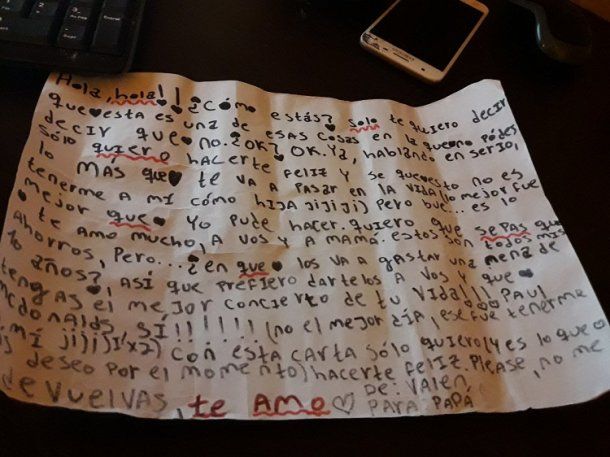 Hola, hola! ¡¿Cómo estás? Solo te quiero decir
que esta es una de esas cosas en la que no podés
decir que no. ¿OK? OK. Ya, hablando en serio,
sólo quiero hacerte feliz y se que esto no es
lo MÁS que te va a pasar en la vida (lo mejor fue
tenerme a mí cómo hija jijiji) pero bue... es lo
mejor que yo pude hacer. quiero que sepas que
te amo mucho, a vos y a mamá. estos son todos mis
Ahorros, pero...¿en que los va a gastar una nena de
10 años?, ASÍ que prefiero dartelos a vos y que
tengas el mejor concierto de tu vida!!! Paul
mcdonalds, SÍ!!!!!! (no el mejor día, ese fue tenerme
a mí jijiji x2) con esta carta sólo quiero (y es lo que
deseo por el momento) hacerte feliz. Please, no me
devuelvas, te AMO ♡ De: Valen,
PARA PAPÁ